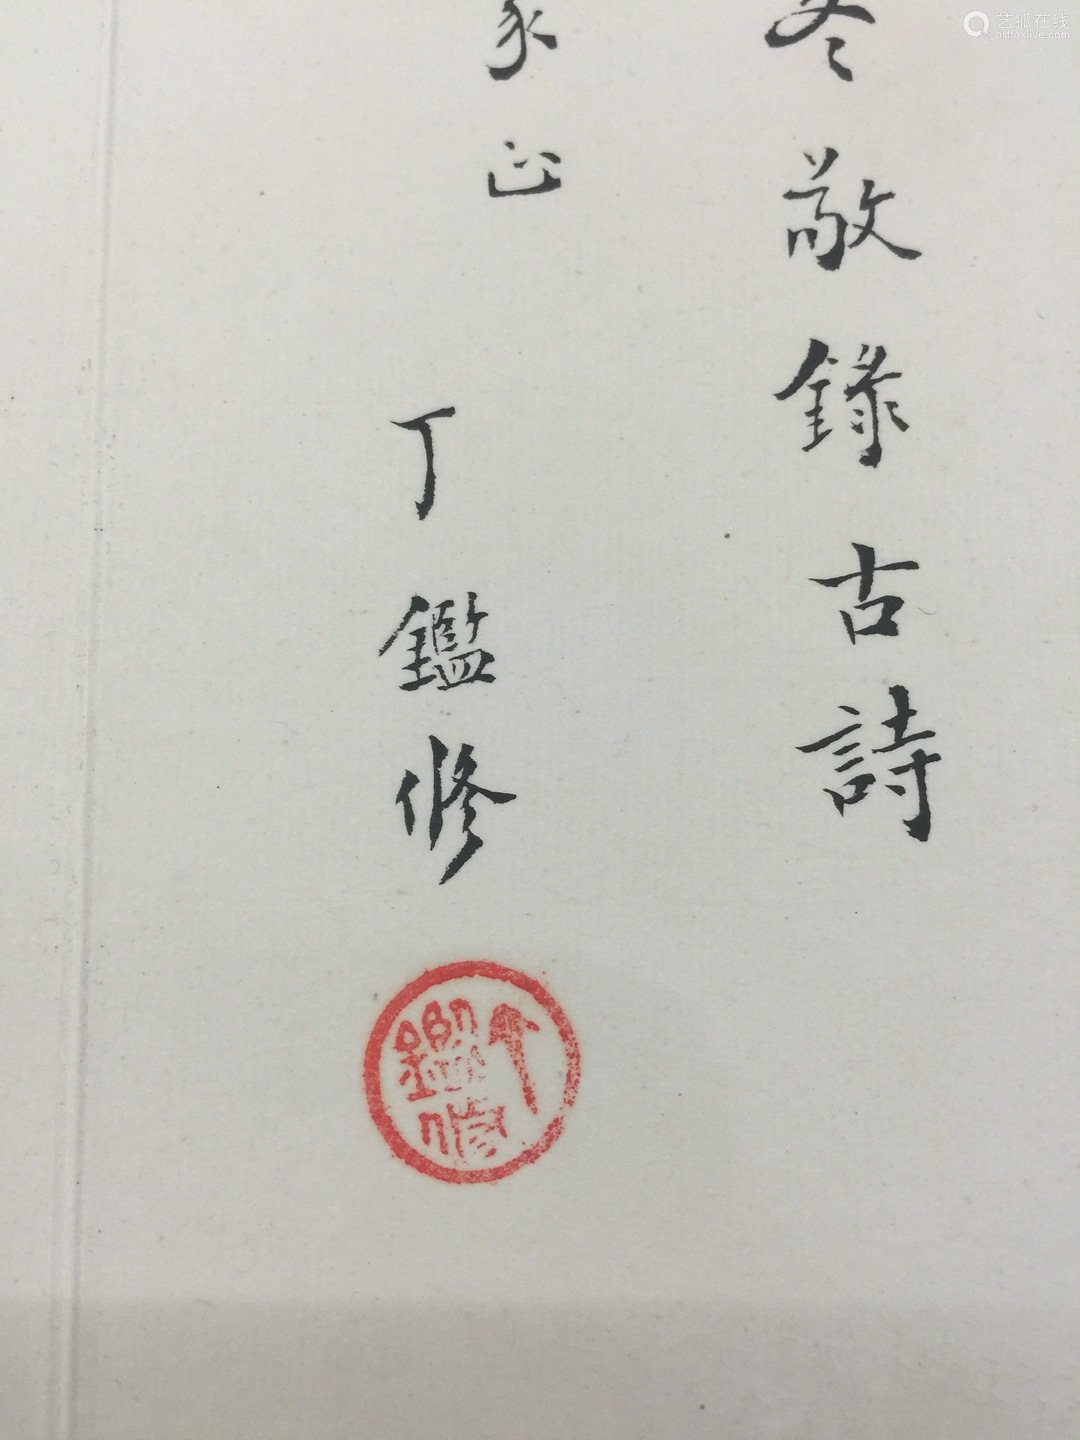 冬敬錄古詩
家正
丁鑑修
丁鑑修
艺狐在线
artfoxlive.com